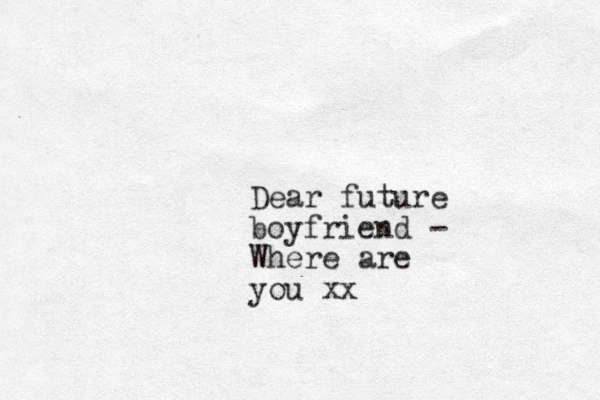 Dear future
boyfriend -
Where are
you xx